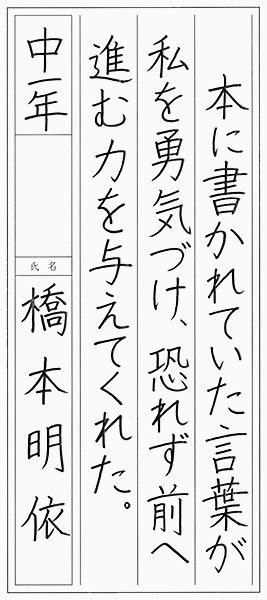 本に書かれていた言葉が
私を勇気づけ、恐れず前へ
進む力を与えてくれた。
中一年
氏名
橋本明依